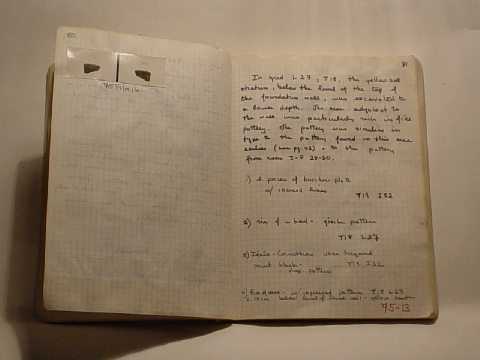 80.
81
In grid L27, T18, the yellow soil
stratum, below the level of the top of
the foundation wall, was excavated to
a lower depth. The area adjacent to
the wall was particularly rich in fine
pottery. The pottery was similar in
type to the pottery found in this area
earlier (see pg. ) & to the pottery
from rows I-P 28-30.
1) 2 pieces of bucchero plate
w/ incised lines
T18 I32
2) rim of a bowl - pattern
T18 L27
3) Italo-Corinthian fragment
paint: black -
pattern
4) w/ impressed pattern T18 L27
c. 10 cm below level of found. wall - yellow
75-13